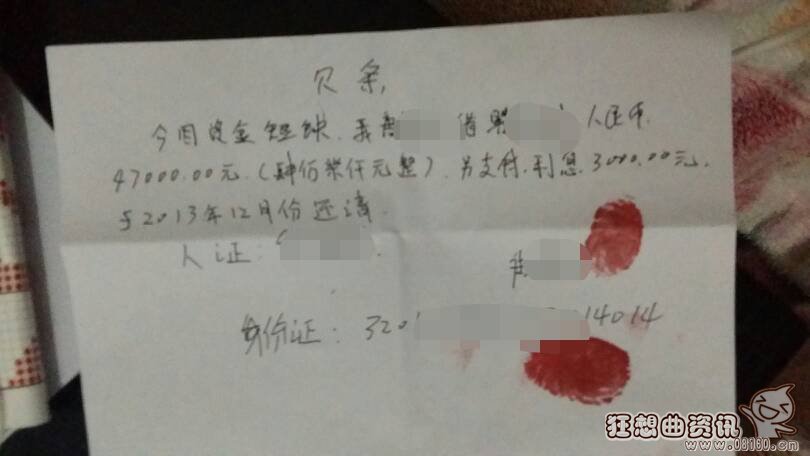 欠条
今因资金短缺、我 借 人民币
47000.00元、(肆佰柒仟元整)、另支付利息3000.00元、
于2013年12月份还清
人证:
身份证: 320 14014
狂想曲资讯
www.08160.cn